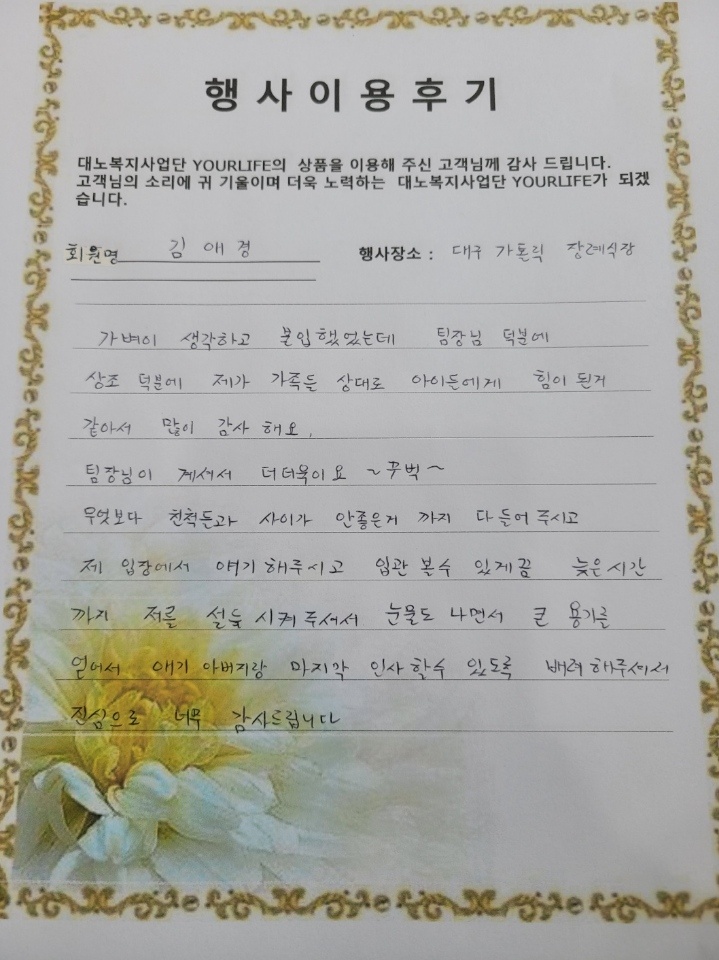 행사이용후기
대노복지사업단 YOURLIFE의 상품을 이용해 주신 고객님께 감사 드립니다.
고객님의 소리에 귀 기울이며 더욱 노력하는 대노복지사업단 YOURLIFE가 되겠
습니다.
회원명 김애경 행사장소 : 대구 가톨릭 장례식장
가벼이 생각하고 불입했었는데 팀장님 덕분에
상조 덕분에 제가 가족들 상대로 아이들에게 힘이 된거
같아서 많이 감사 해요.
팀장님이 계셔서 더더욱이요 ~꾸벅~
무엇보다 친척들과 사이가 안좋은거 까지 다 들어 주시고
제 입장에서 얘기 해주시고 입관 볼수 있게끔 늦은 시간
까지 저를 설득 시켜 주셔서 눈물도 나면서 큰 용기를
얻어서 애기 아버지랑 마지막 인사 할수 있도록 배려 해주셔서
진심으로 너무 감사드립니다